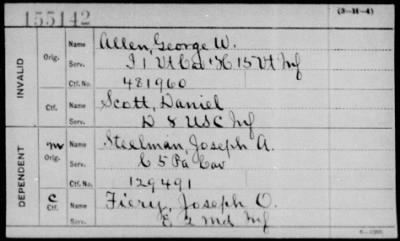 155142
(3-H-4)
INVALID
Orig.
Name Allen, George W.
Serv. I 1 Vt Cav & K 15 Vt Inf
Ctf. No. 481960
Ctf.
Name Scott, Daniel
Serv. D 8 USC Inf
DEPENDENT
m
Orig.
Name Steelman, Joseph A.
Serv. C 5 Pa Cav
Ctf. No. 129491
C
Ctf.
Name Fiery, Joseph O.
Serv. E 2 Md Inf